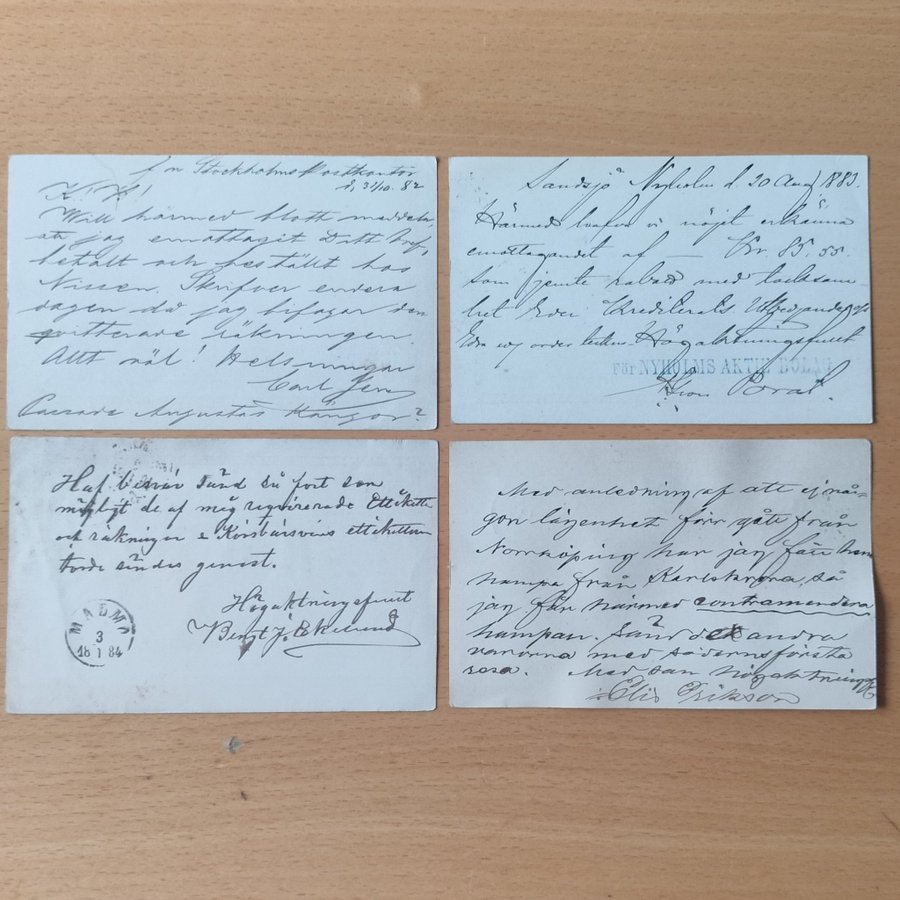 Stockholms Postkontor
d. 31/10. 82
K. H!
Will härmed blott meddela,
att jag emottagit Ditt bref,
betalt och bestält hos
Nissen. Skrifver endera
dagen då jag bifogar den
qvitterade räkningen.
Allt väl! Helsningar
Carl
Augustas
Landsjö Nyholm d. 20 Aug 1883.
Härmed hafva vi nöjet erkänna
emottagandet af — Kr. 85.55
som jemte rabatt med tacksam-
het Eder Krediterats.
Högaktningsfullt
För NYHOLMS AKTIE BOLAG
Haf besvär sänd så fort som
möjligt de af mig reqvirerade Ettikette
och räkningar Körsbärsvins ettiketten
torde sändes genast.
Högaktningsfullt
Bengt J. Ekelund
MALMÖ
3
18 1 84
Med anledning af att ej nå=
gon lägenhet förr gått från
Norrköping har jag fått
hampa från Karlskrona, så
jag får härmed contramendera
hampan. Sänd de andra
varorna med Söderns första
resa. Med san högaktning
Elis Erikson